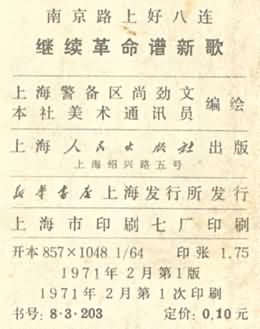 南京路上好八连
继续革命谱新歌
上海警备区尚劲文
本社美术通讯员 编绘
上海人民出版社出版
上海绍兴路五号
新华书店上海发行所发行
上海市印刷七厂印刷
开本 857×1048 1/64 印张 1.75
1971年2月第1版
1971年2月第1次印刷
书号: 8·3·203 定价: 0.10元